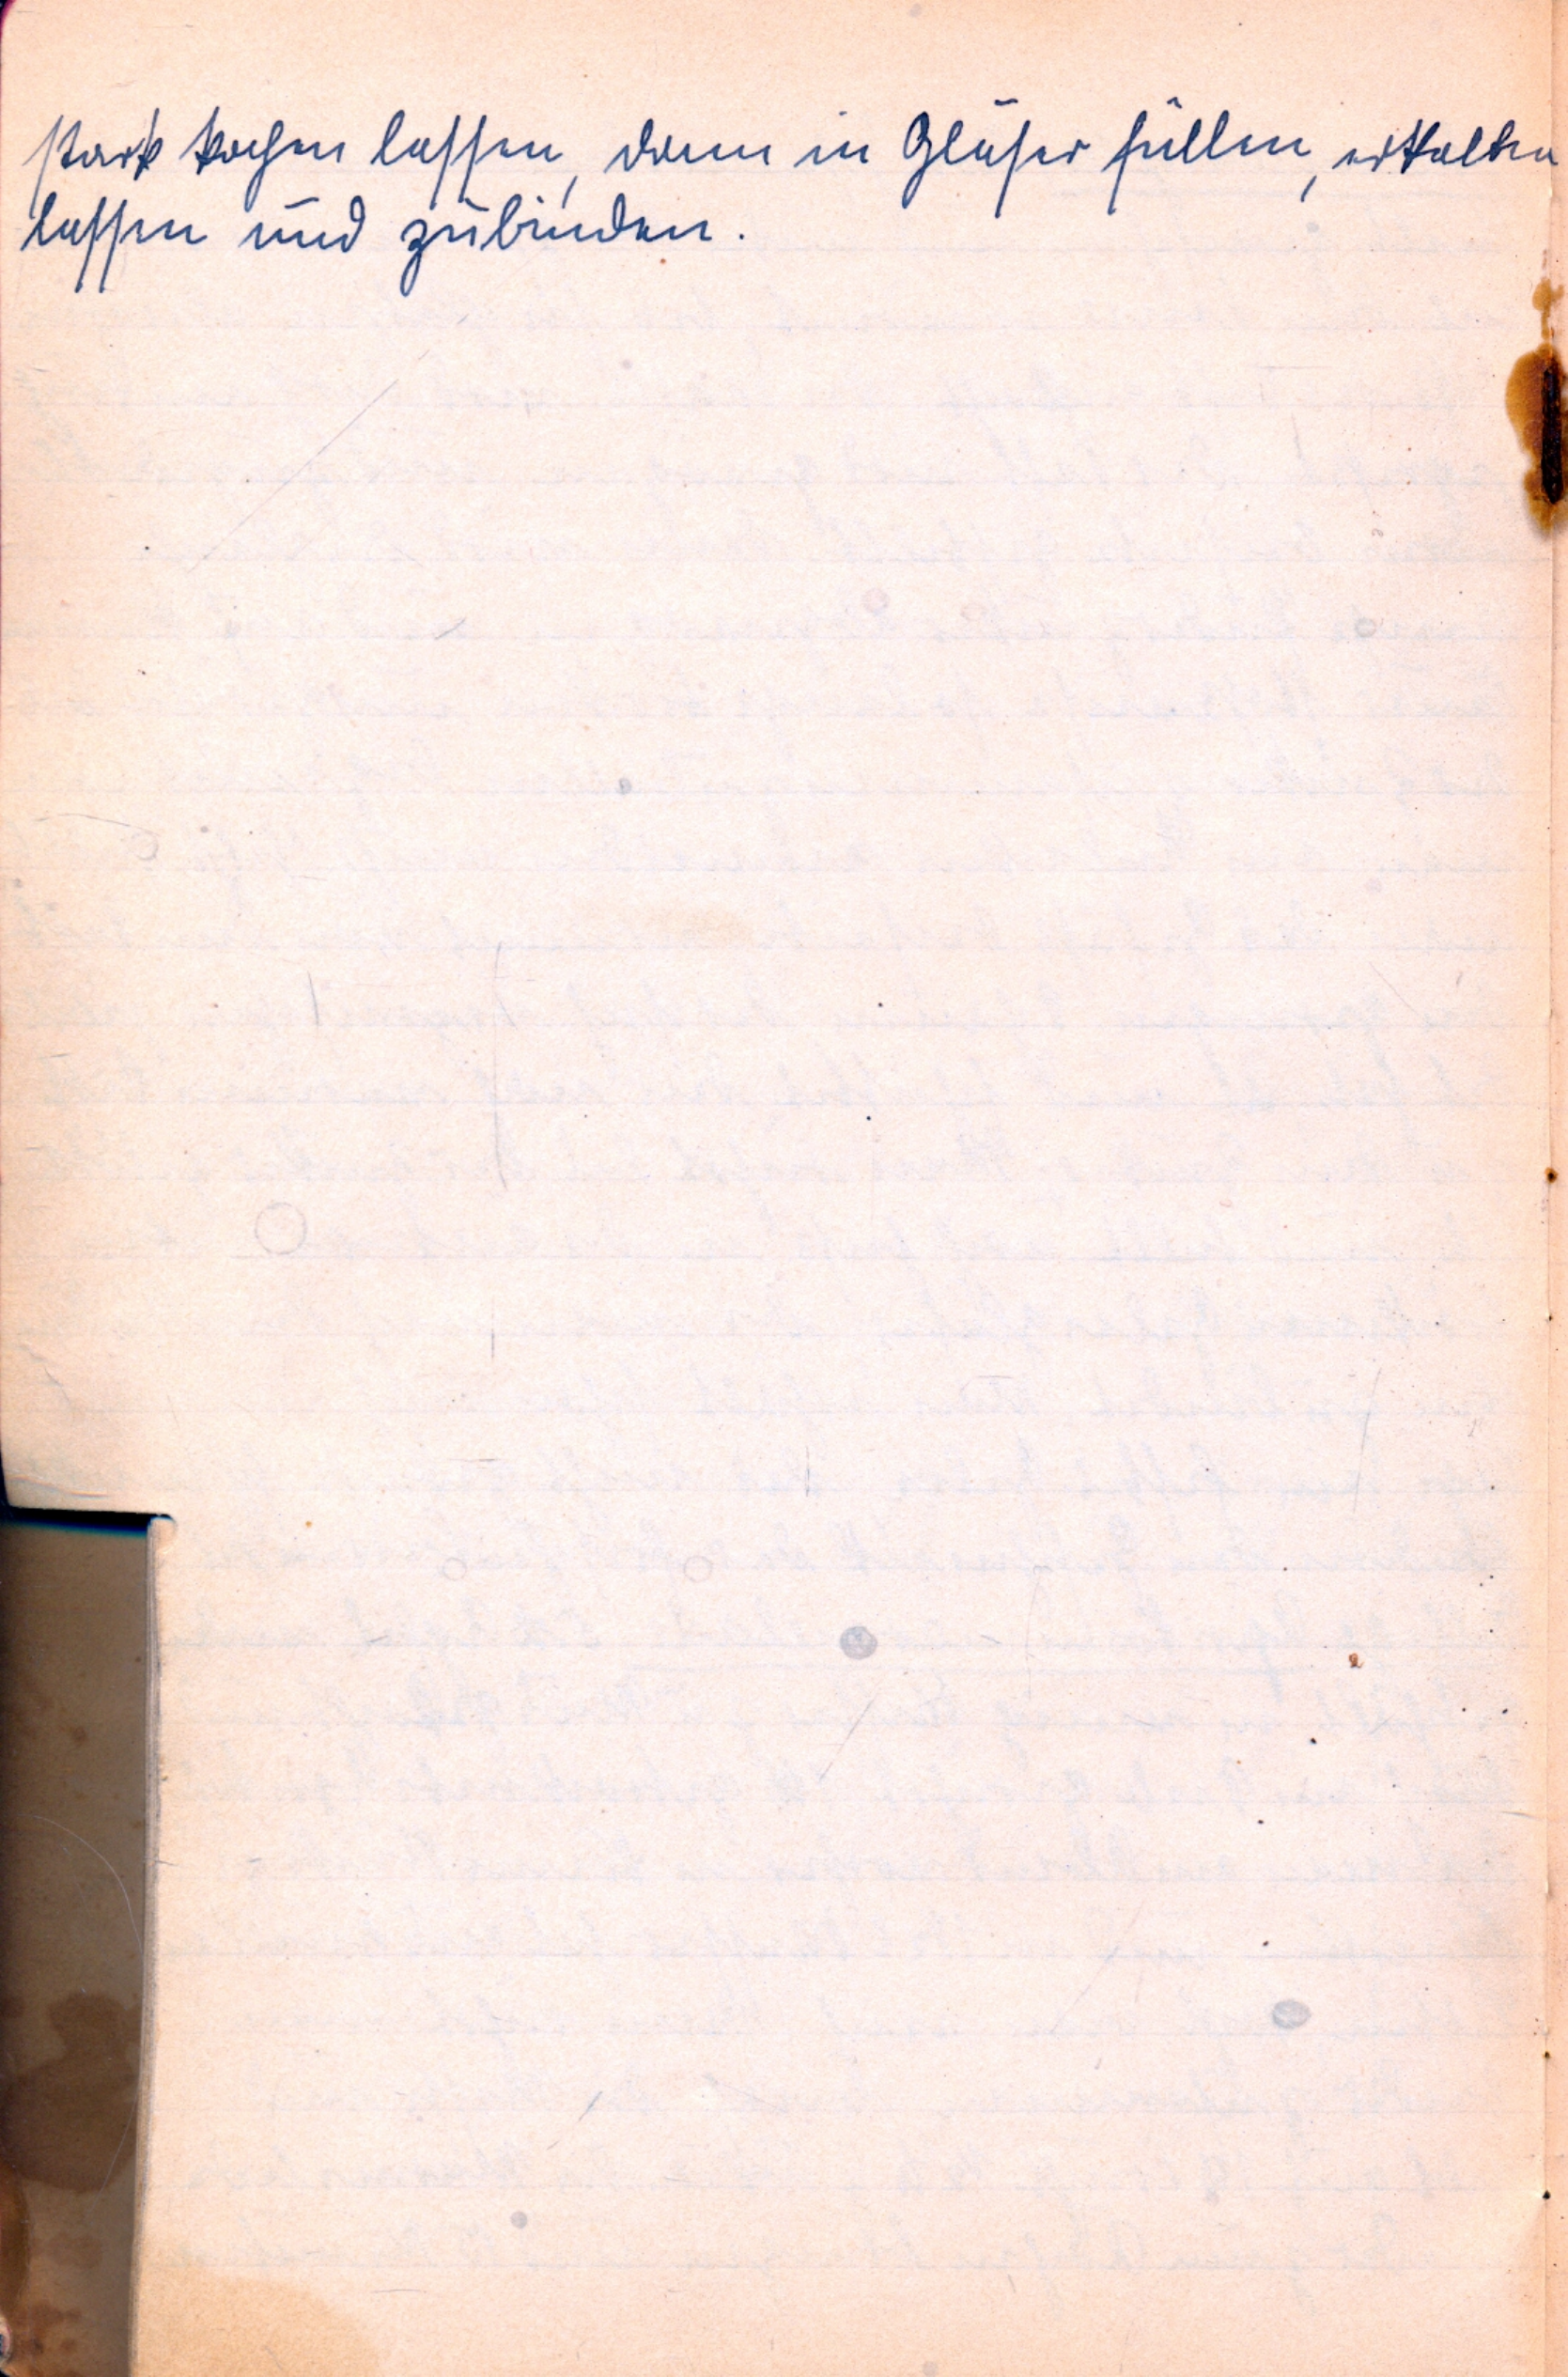 stark kochen lassen, dann in Gläser füllen, erkalten
lassen und zubinden.